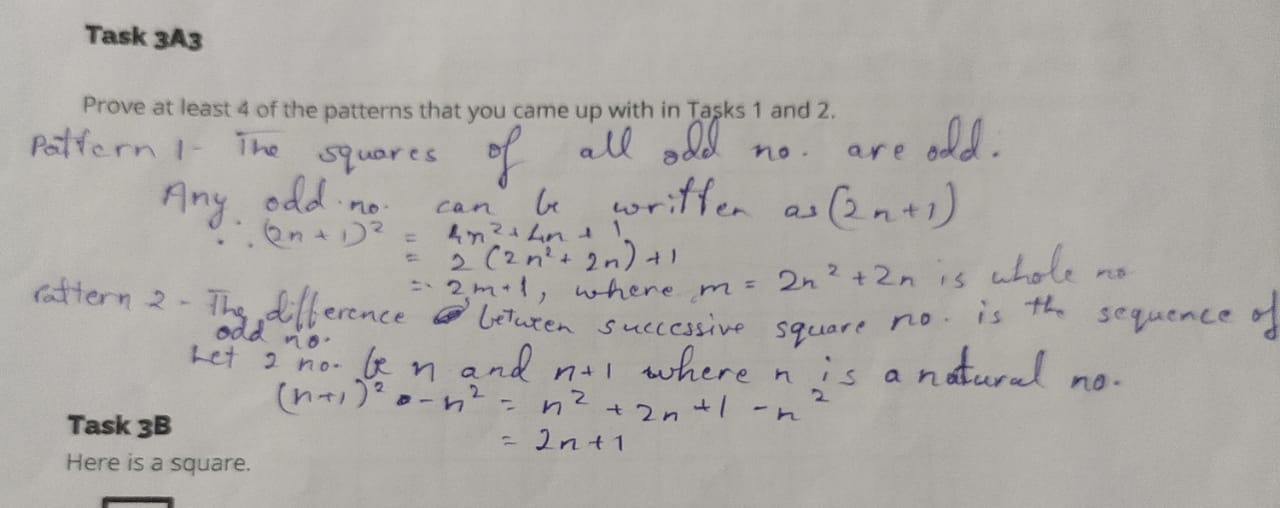 Task 3A3
Prove at least 4 of the patterns that you came up with in Tasks 1 and 2.
Pattern 1- The squares of all odd no. are odd.
Any odd no. can be written as (2n+1)
∴ (2n+1)² = 4n²+4n+1
= 2(2n²+2n)+1
= 2m+1, where m = 2n²+2n is whole no
Pattern 2 - The difference between successive square no. is the sequence of
odd no.
Let 2 no. be n and n+1 where n is a natural no.
(n+1)² - n² = n² + 2n + 1 - n²
= 2n+1
Task 3B
Here is a square.